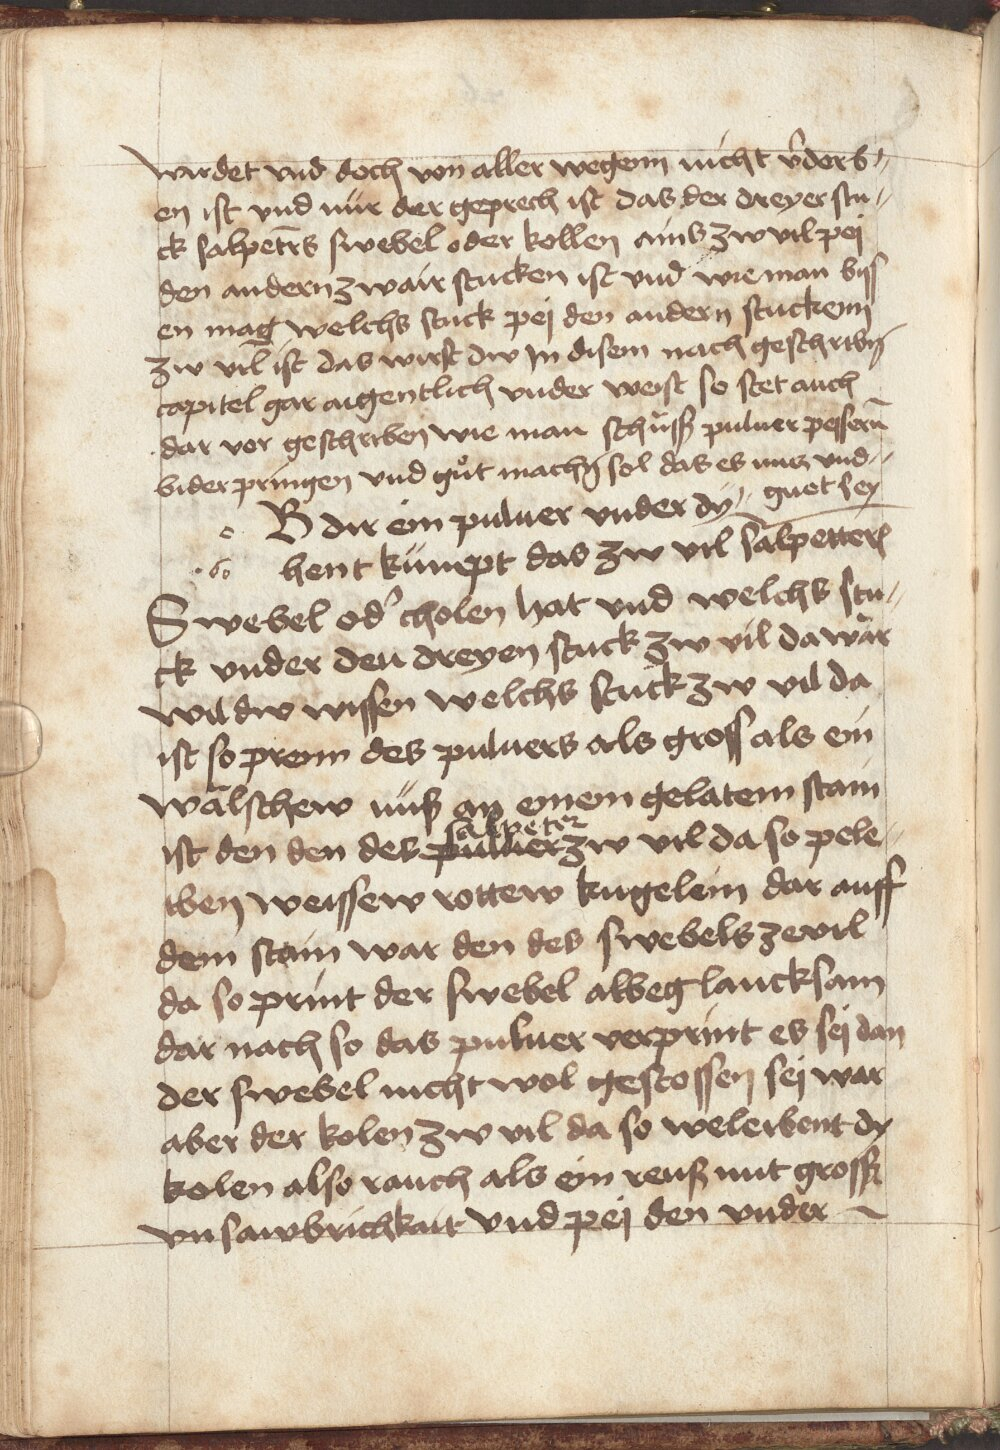 wirdet vnd doch von aller wegenn nicht v̈derb=
en ist vnd nür der geprech ist das der dreyer stu=
ck salpeters swebel oder kollen ains zw vil pej
den andern zwair stucken ist vnd wie man biss
en mag welchs stuck pej den andern stuckenn
zw vil ist das wirst dw In disem nach geschribn̄
capitel gar aigentlich vnder weist so stet auch
dar vor geschriben wie man schüss puluer pessern̄
bider pringen vnd gůt machn̄ sol das es nüs vnd=
guet sey
c B dir ein puluer vnder dy=
·6o hent kümpt das zw vil salpetters
Swebel od' cholen hat vnd welchs stu=
ck vnder den dreyen stuck zw vil da wär
wil dw wissen welchs stuck zw vil da
ist so prenn des puluers als gross als ein
wälschew nuss an einem gelatem stain
salpeter
ist den den des puluer zw vil da so pele=
iben weissew rottew kugelein dar auff
dem stain war den des swebels ze vil
da so print der swebel albeg lancksam
dar nach so das puluer verprint es sej dan
der swebel nicht wol gestossen sej war
aber der kolen zw vil da so weleibent dy
kolen also rauch als ein reuss mit grosser
vnsawbrichkait vnd pej den vnder